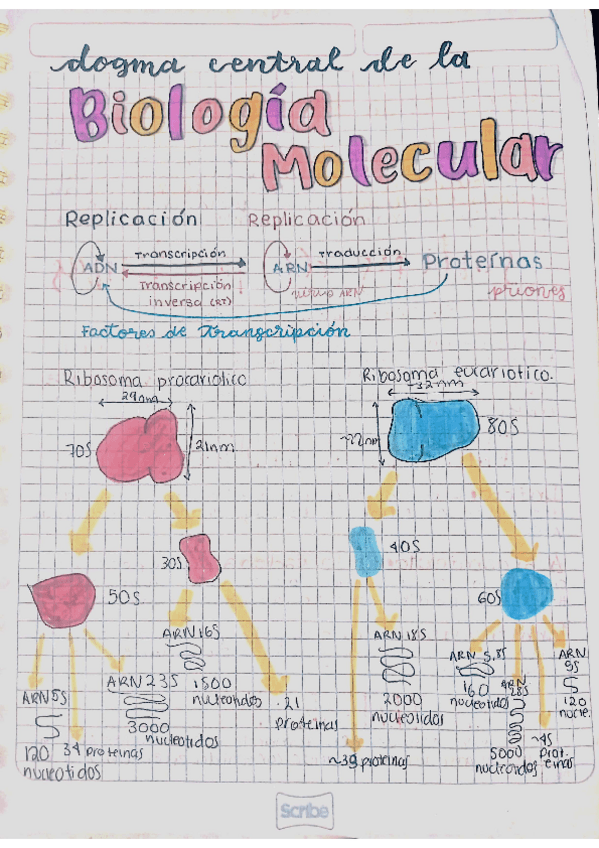 dogma central de la
Biología
Molecular
Replicación Replicación
ADN Transcripción ARN Traducción Proteínas
Transcripción
inversa (RT)
virus ARN
priones
Factores de Transcripción
Ribosoma procariotico
Ribosoma eucariotico.
29nm
~32nm
70S
21nm
~22nm
80S
30S
40S
50S
60S
ARN 16S
1500
nucleotidos
ARN 18S
2000
nucleotidos
ARN 5S
120
nucleotidos
34 proteinas
ARN 23S
3000
nucleotidos
21
proteinas
~33 proteinas
ARN 5.8S
160
nucleotidos
ARN
28S
5000
nucleotidos
~45
prot.
einas
ARN
5S
120
nucle.
Scribe